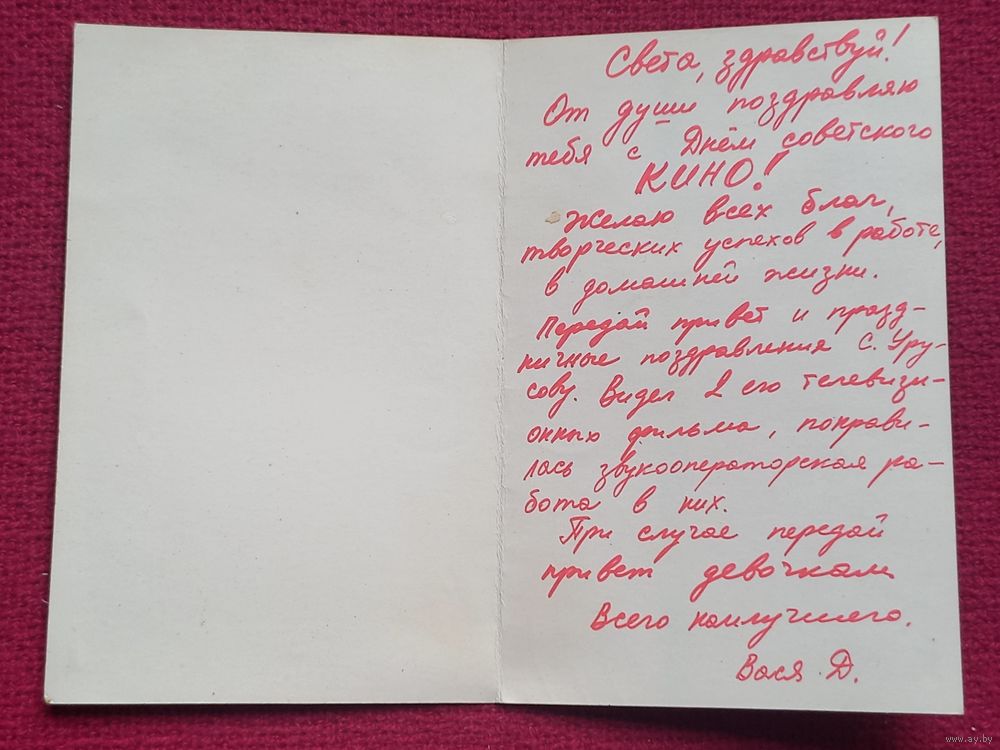 Света, здравствуй!
От души поздравляю
тебя с Днём советского
КИНО!
Желаю всех благ,
творческих успехов в работе,
в домашней жизни.
Передай привет и празд-
ничные поздравления С. Уру-
сову. Видел 2 его телевизи-
онных фильма, понрави-
лась звукооператорская ра-
бота в них.
При случае передай
привет девочкам
Всего наилучшего.
Вася Д.
www.ay.by